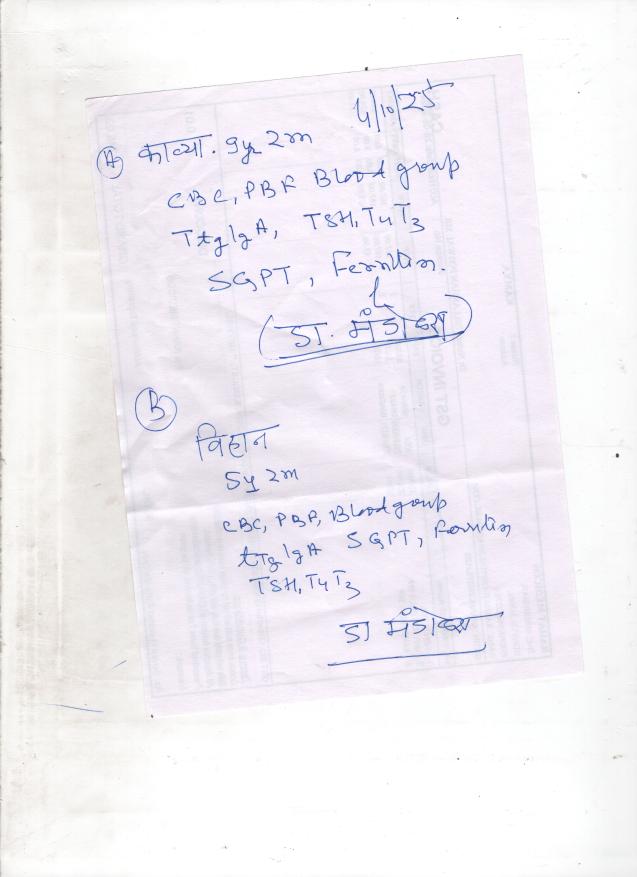 4/10/25
A काव्या. 9y 2m
CBC, PBF Blood group
Ttg IgA, TSH, T4 T3
SGPT, Ferritin.
डा. मंडोव्रा
B
विहान
5y 2m
CBC, PBF, Blood group
tTg IgA SGPT, Ferritin
TSH, T4 T3
डा मंडोव्रा